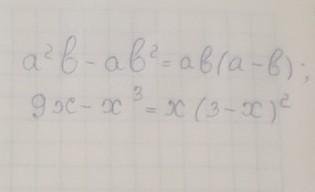 a²b - ab² = ab(a - b);
9x - x³ = x(3 - x)²